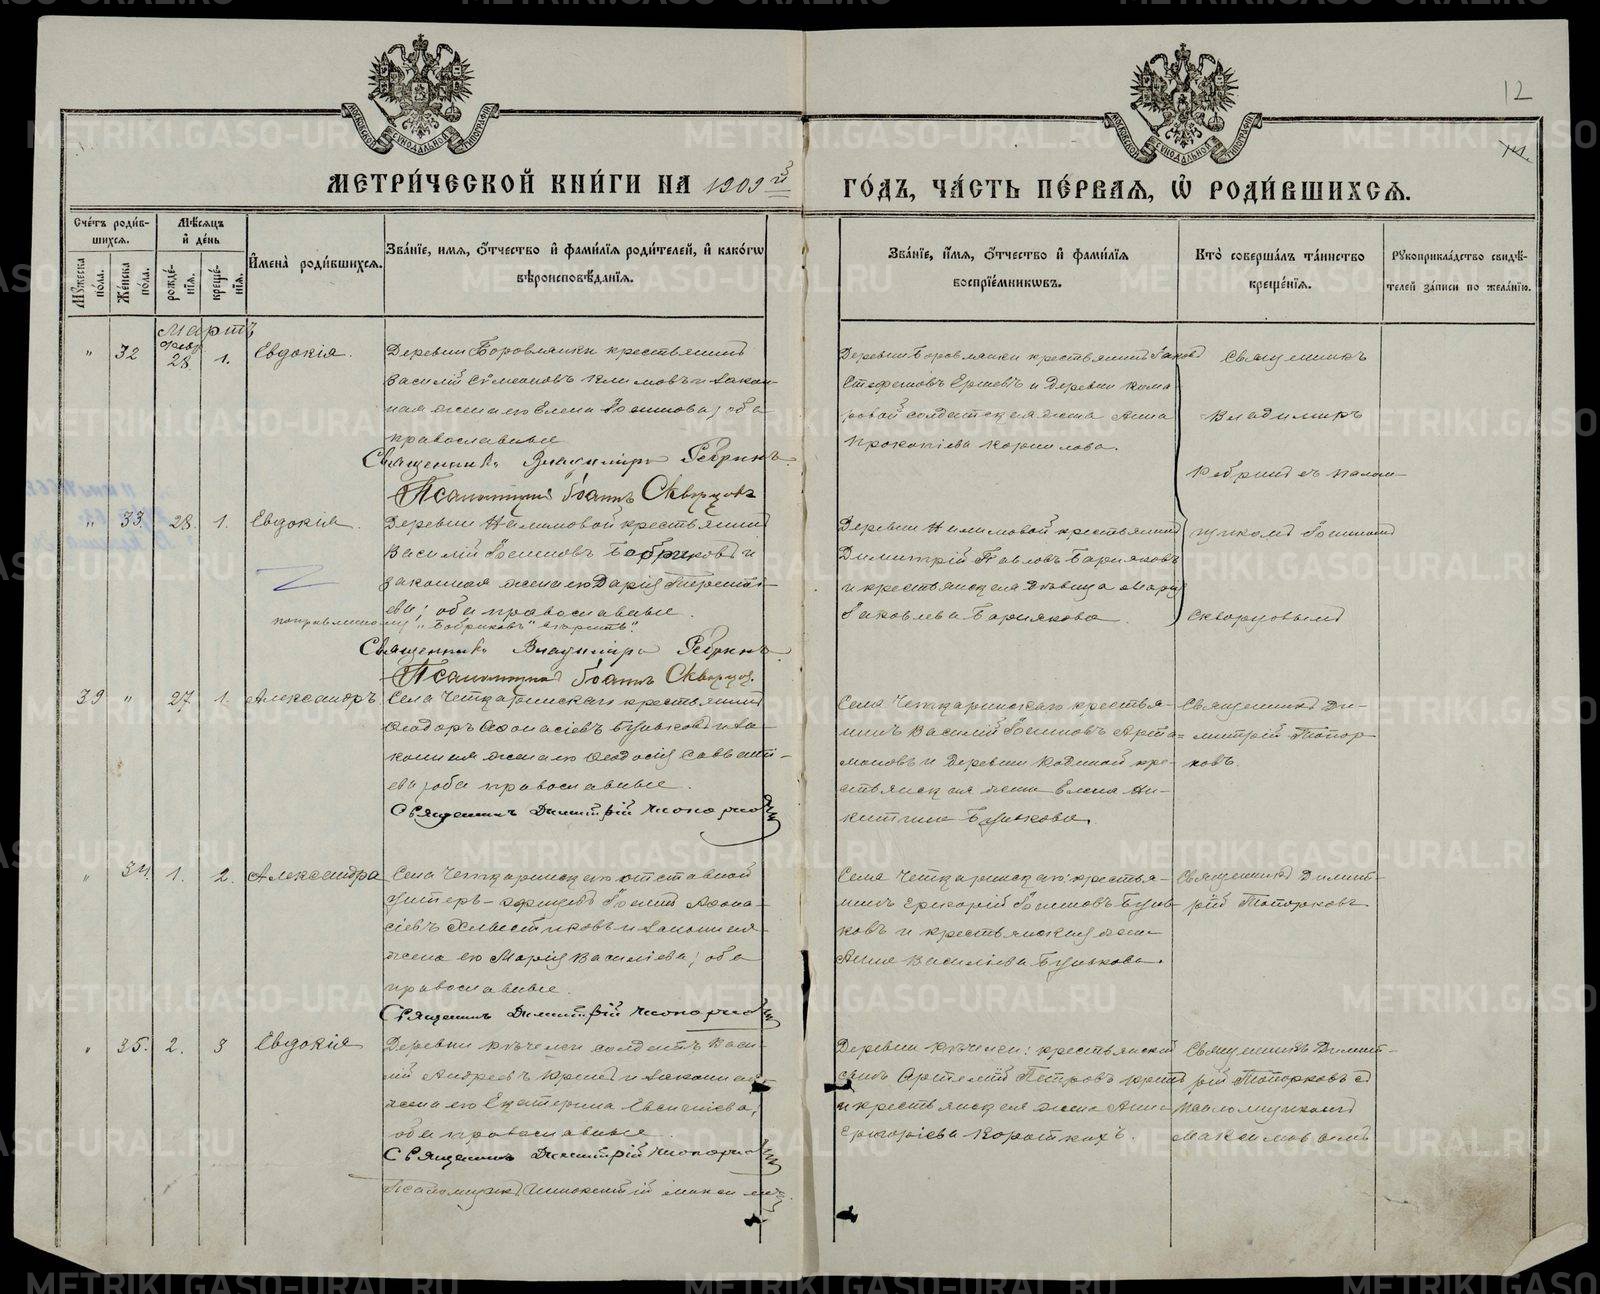 12
МЕТРИ́ЧЕСКОЙ КНИ́ГИ НА 1909й
ГО́ДЪ, ЧА́СТЬ ПЕ́РВАЯ, Ѿ РОДИ́ВШИХСЯ.
Сче́тъ роди́в-
шихся.
Мѣ́сяцъ
и҆ де́нь
Мꙋ́жеска по́ла.
Же́нска по́ла.
рожде́-нїя.
креще́-нїя.
И҆мена̀ роди́вшихся.
Зва́нїе, имя, ѻ҆́тчество и҆ фами́лїя роди́телей, и҆ како́гѡ
вѣроисповѣ́данїя.
Зва́нїе, и҆́мя, ѻ҆́тчество и҆ фами́лїя
воспрїе́мникѡвъ.
Кто̀ соверша́лъ та́инство
креще́нїя.
Рꙋкоприкла́дство свидѣ́-
телей за́писи по жела́нїю.
Мартъ
" 32 февр 28 1. Евдокія.
Деревни Боровлянки крестьянинъ
Василій Симеоновъ Климовъ и закон-
ная жена его Елена Іоаннова; оба
православные
Священникъ Владиміръ Ребринъ.
Псаломщикъ Іоаннъ Скворцовъ
Деревни Боровлянки крестьянинъ Іаковъ
Стефановъ Ершевъ и деревни Кома-
ровой солдатская жена Анна
Прокопіева Корнилова.
Священникъ
Владиміръ
Ребринъ съ псалом-
щикомъ Іоанномъ
Скворцовымъ
" 33. 28. 1. Евдокія.
Деревни Налимовой крестьянинъ
Василій Іоанновъ Бобриковъ и
законная жена его Дарія Теренті-
ева; оба православные.
поправленному "Бобриковъ" вѣрить".
Священникъ Владиміръ Ребринъ.
Псаломщикъ Іоаннъ Скворцовъ.
Деревни Налимовой крестьянинъ
Димитрій Павловъ
и крестьянская дѣвица Марія
Іаковлева
39 " 27. 1. Александръ
Села Четкаринскаго крестьянинъ
Ѳеодоръ Аѳонасіевъ Буньковъ и за-
конная жена его Ѳеодосія Савваті-
ева; оба православные.
Священникъ Димитрій Топорковъ
Села Четкаринскаго крестья-
нинъ Василій Іоанновъ Арта-
моновъ и деревни Родиной кре-
стьянская жена Елена Ни-
китина Бунькова.
Священникъ Ди-
митрій Топор-
ковъ.
" 34. 1. 2. Александра
Села Четкаринскаго отставной
унтеръ-офицеръ Іоаннъ Аѳона-
сіевъ Хлыстиковъ и законная
жена его Марія Василіева; оба
православные.
Священникъ Димитрій Топорковъ
Села Четкаринскаго: крестья-
нинъ Григорій Іоанновъ Бунь-
ковъ и крестьянская жена
Анна Василіева Бунькова.
Священникъ Димит-
рій Топорковъ
" 35. 2. 3 Евдокія
солдатъ Васи-
лій Андреевъ и законная
жена его Екатерина Евсигніева;
оба православные.
Священникъ Димитрій Топорковъ
Псаломщикъ Иннокентій Максимовъ.
крестьянскій
сынъ Артемій Петровъ
и крестьянская жена Анна
Григоріева Короткихъ.
Священникъ Димит-
рій Топорковъ съ
псаломщикомъ
Максимовымъ
METRIKI.GASO-URAL.RU